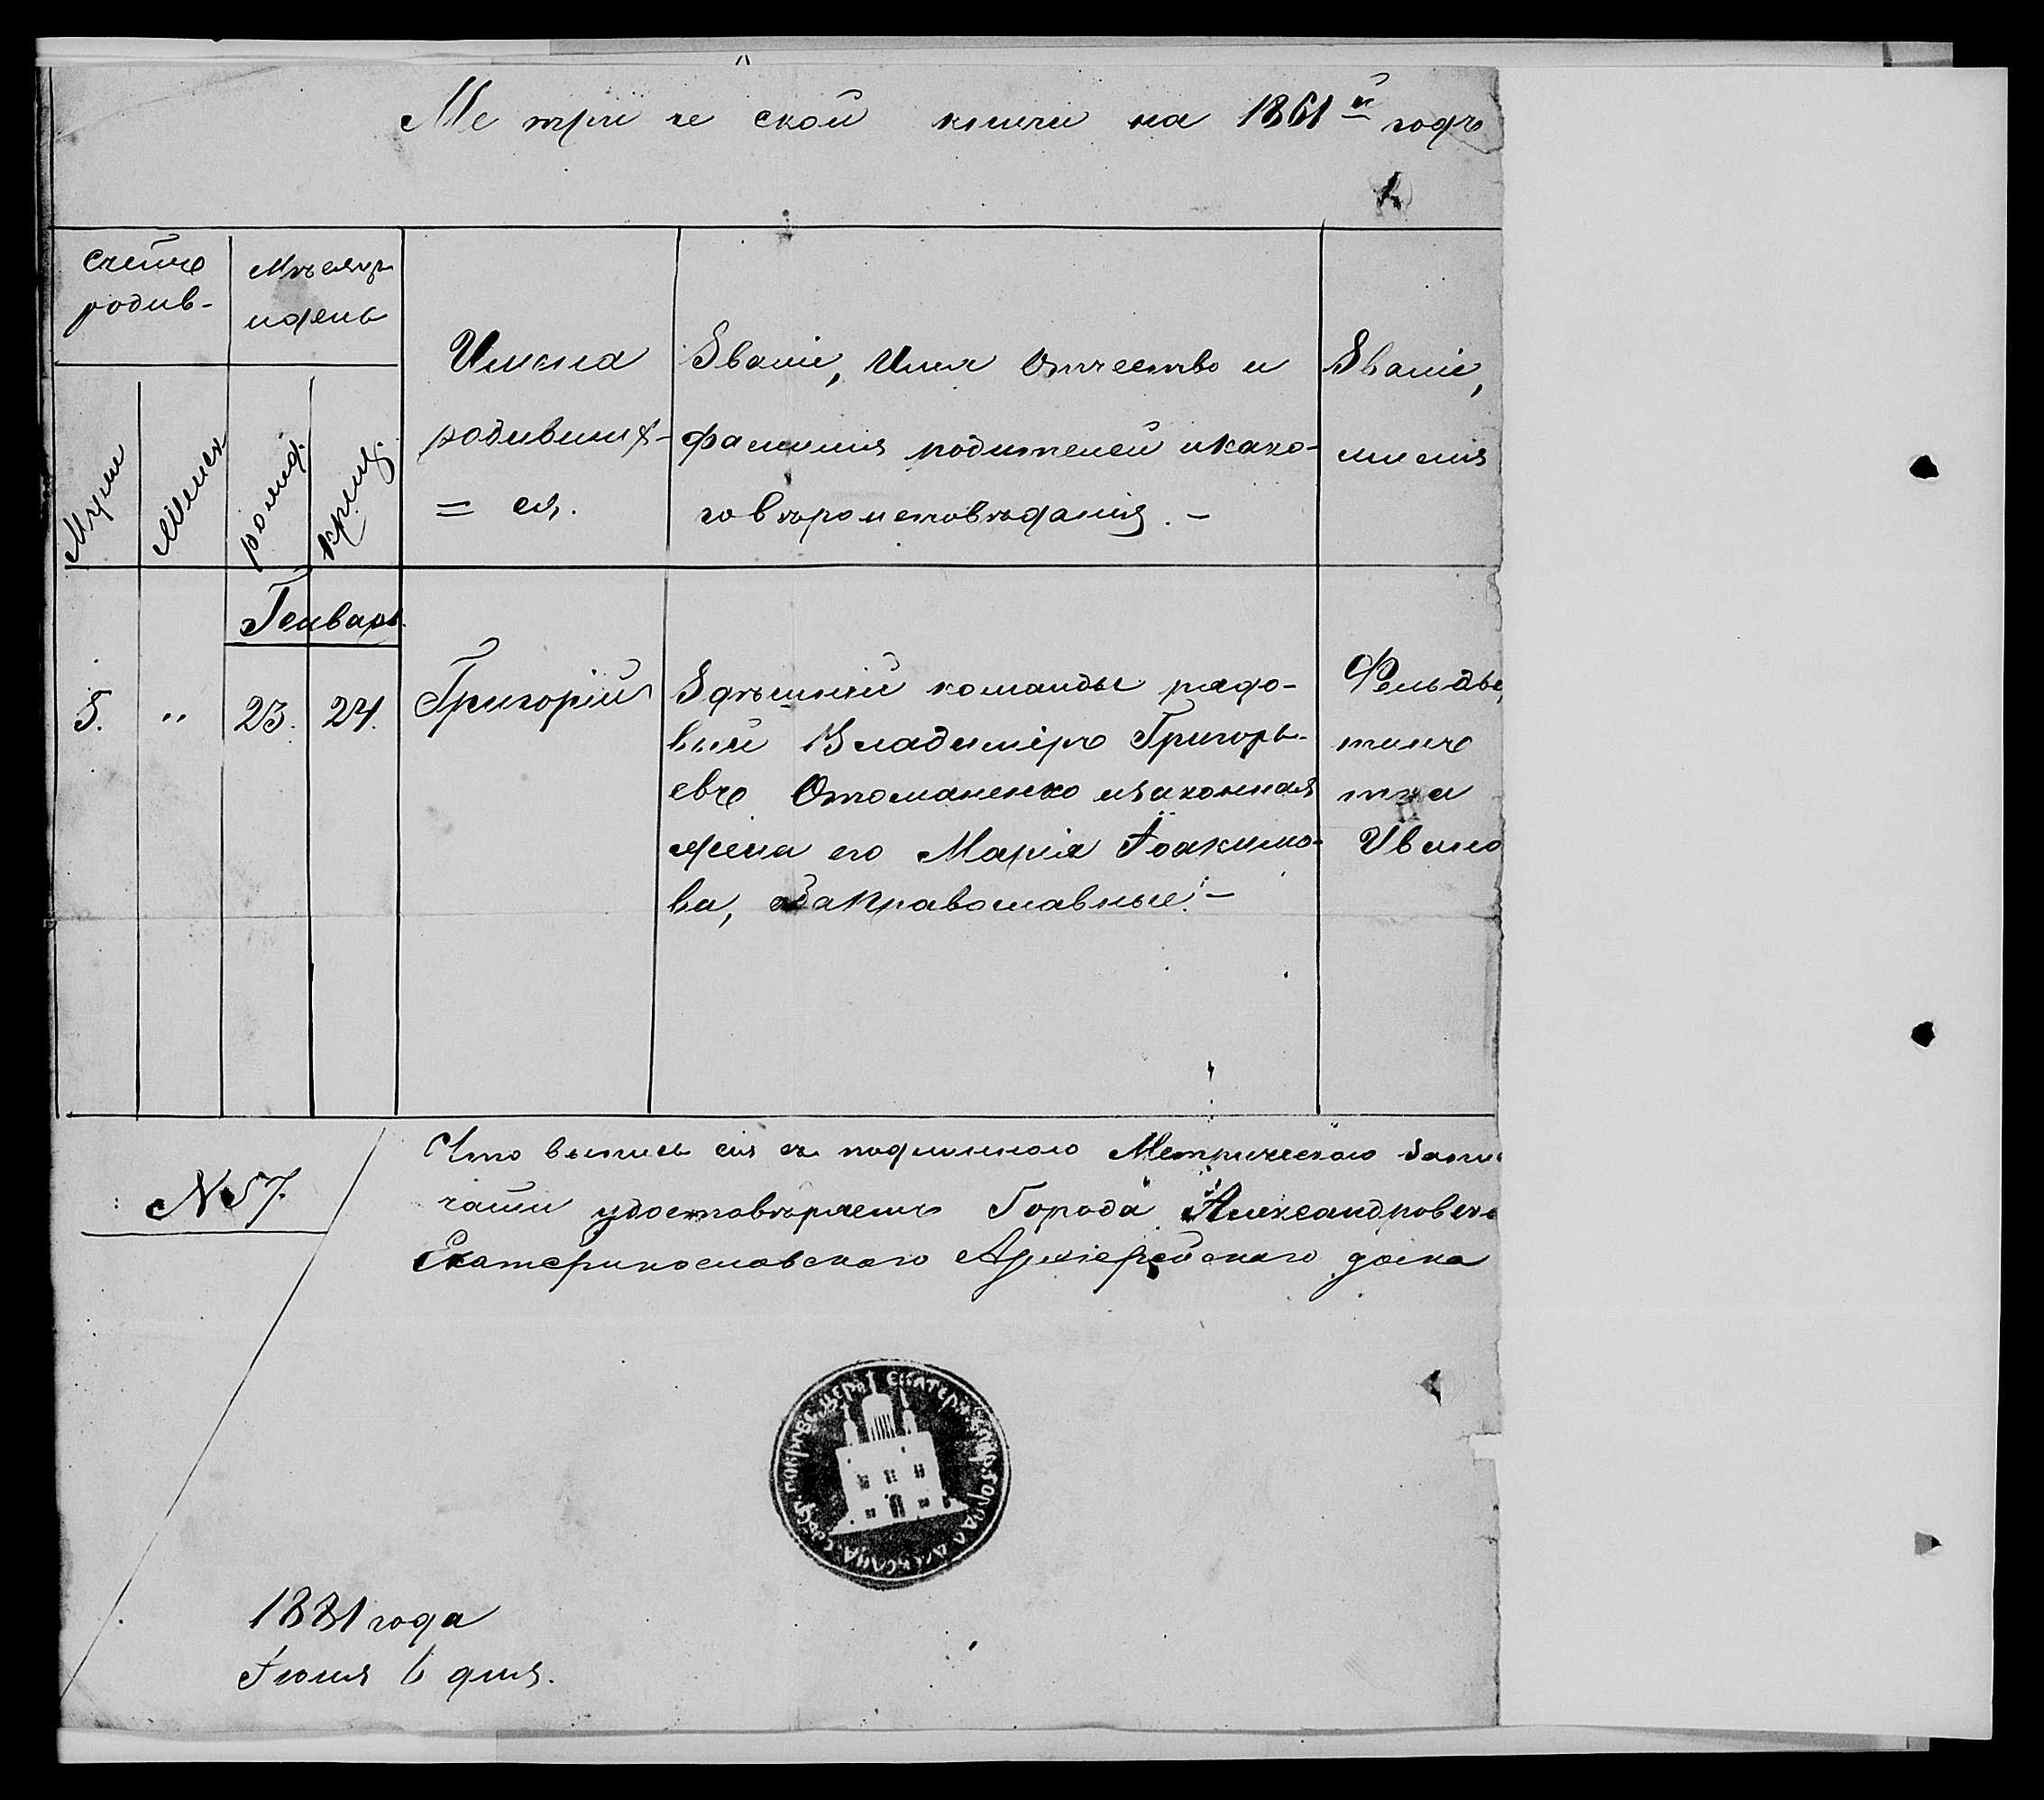 Метрической книги на 1861й годъ
Счетъ родив-
Мѣсяцъ и день
Муж
Женск
рожд.
крещ.
Имена
родивших-
= ся.
Званіе, Имя Отчество и
фамилія родителей и како-
го вѣроисповѣданія. -
Званіе,
милія
Генварь.
5. " 23. 24. Григорій
Здѣшней команды рядо-
вый Владимиръ Григорь-
евъ Отоманенко и законная
жена его Марія Іоакимо-
ва, оба православные. -
Фельдъ
тинъ
тка
Ивано
N 57.
Что выпись сія съ подлинного Метрического запи
чати удостовѣряемъ Города Александровска
Екатеринославского Архіерейского дома
1881 года
Іюня 6 дня.